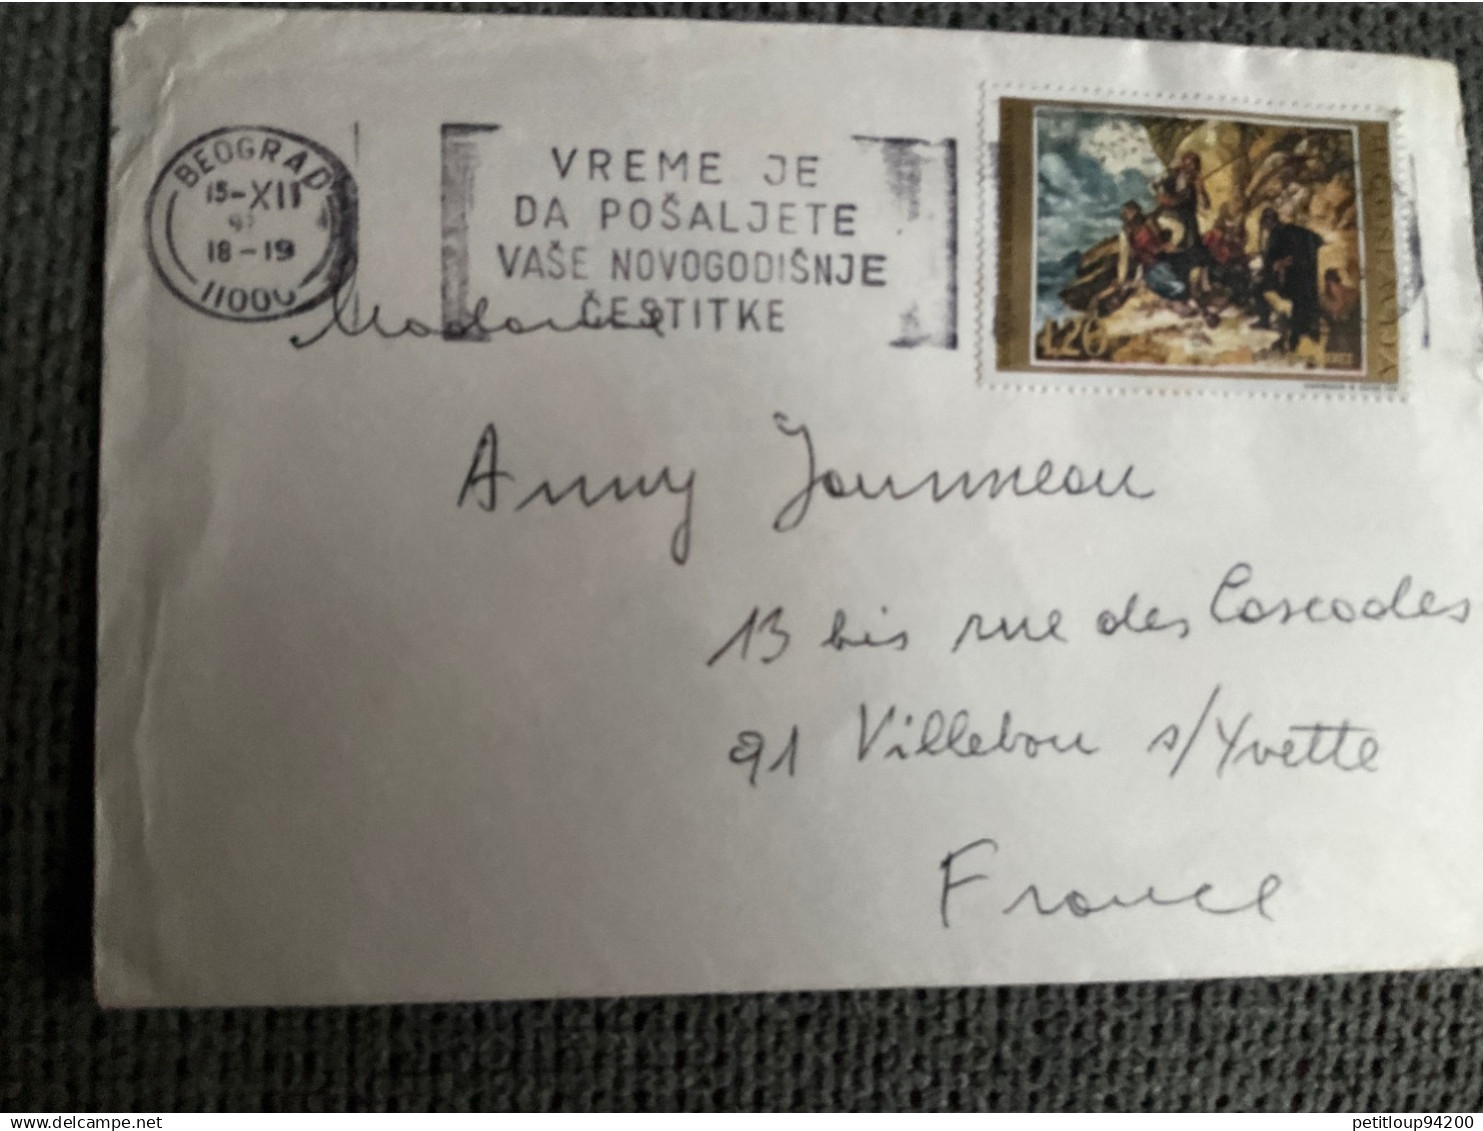 BEOGRAD
15-XII
18-19
11000
VREME JE
DA POŠALJETE
VAŠE NOVOGODIŠNJE
ČESTITKE
1.20
Madame
Anny Jounneau
13 bis rue des Cascades
91 Villebon s/Yvette
France
petitloup94200